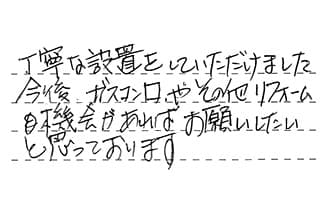 丁寧な設置をしていただけました
今後 ガスコンロやその他リフォーム
の機会があればお願いしたい
と思っております